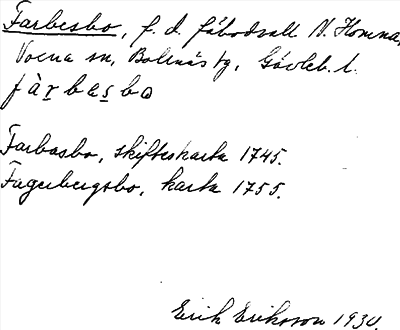 Farbesbo, f. d. fäbodvall N. Homna,
Voxna sn, Bollnäs tg, Gävleb. l.
fàrbesbo
Farbosbo, skifteskarta 1745.
Fagerbergsbo, karta 1755.
Erik Eriksson 1930.